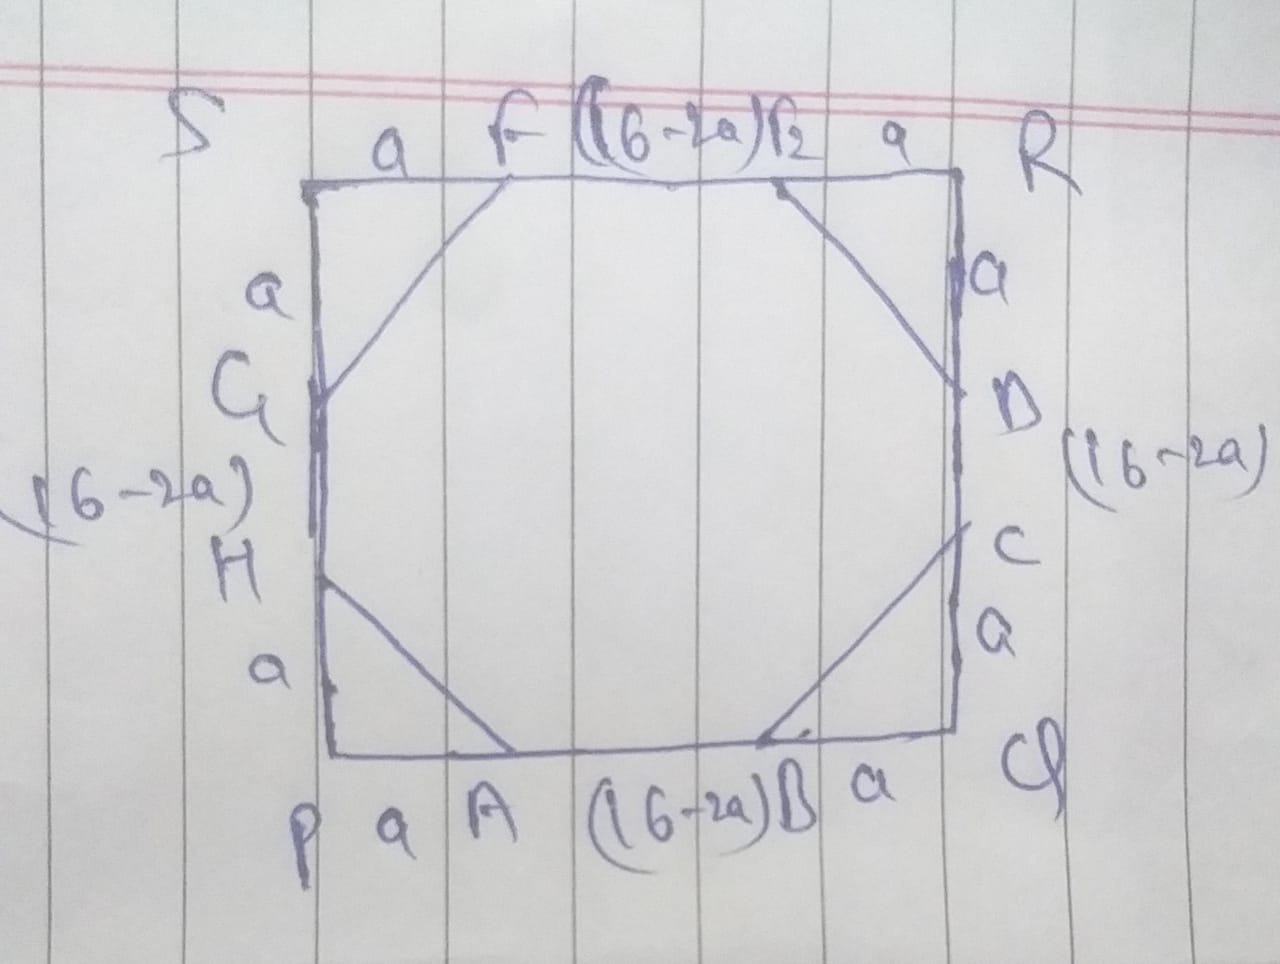 S a F (16-2a) E a R
a a
G D
(16-2a) (16-2a)
H C
a a
P a A (16-2a) B a Q